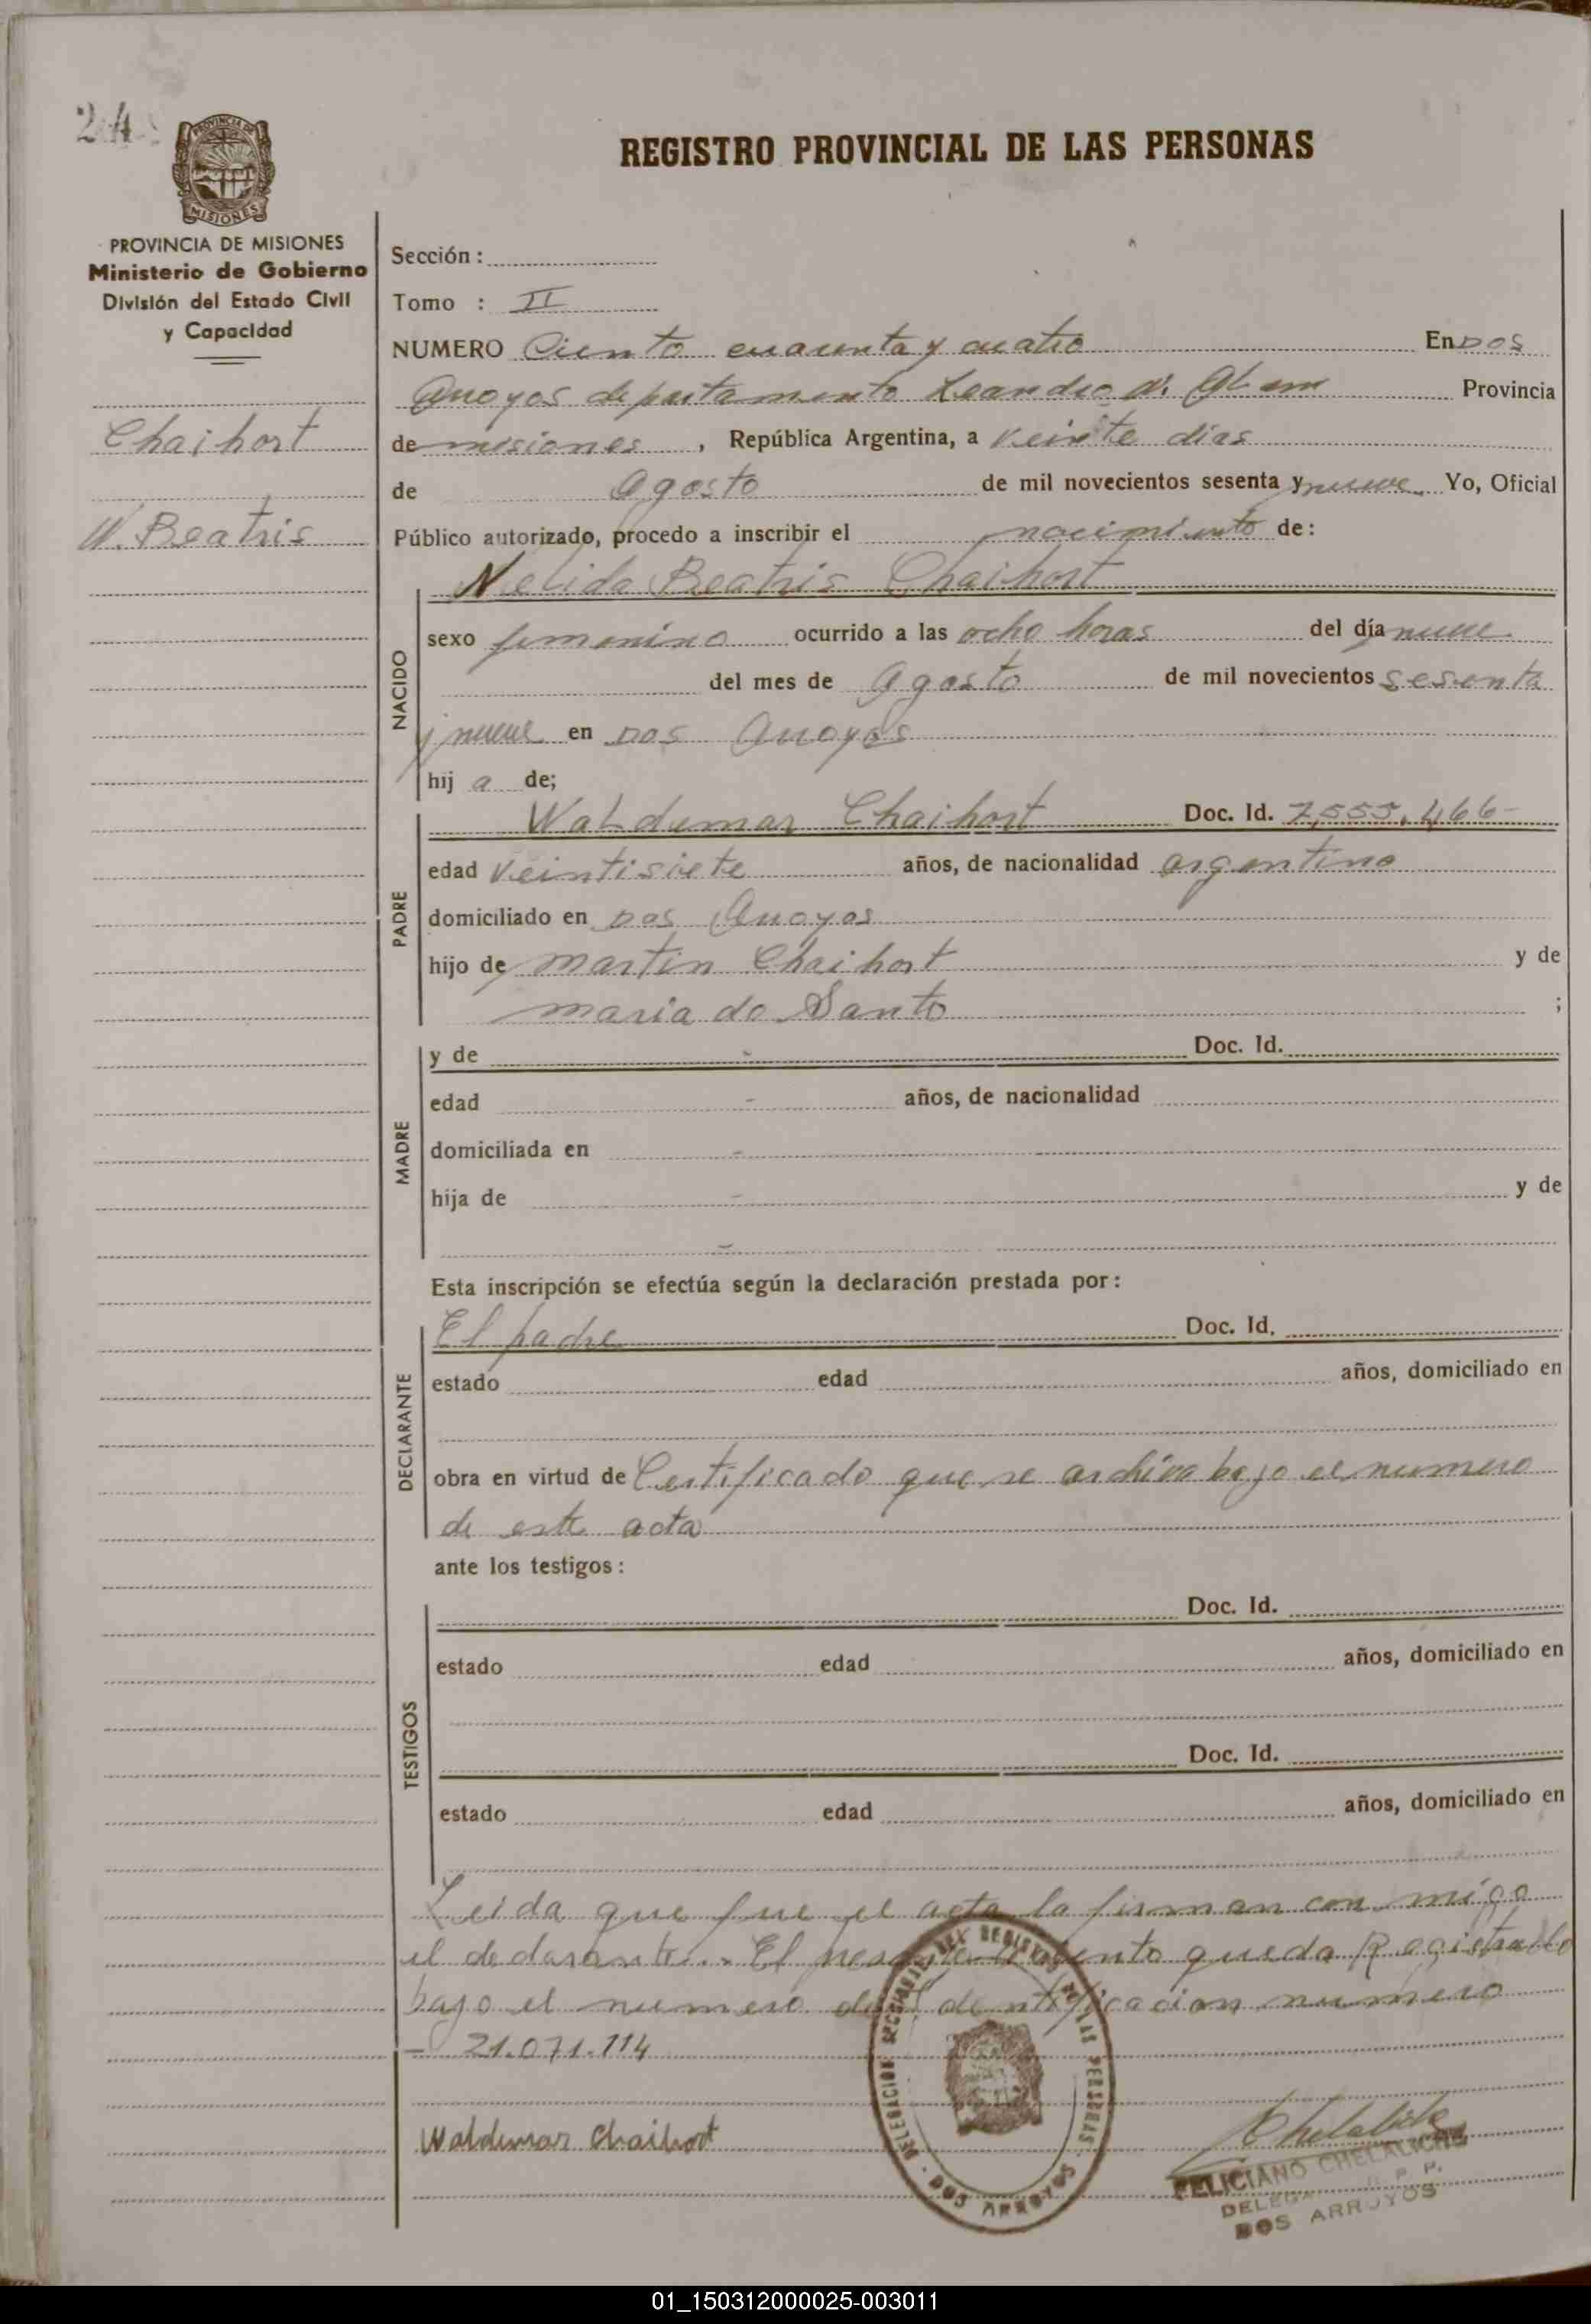 24
PROVINCIA DE MISIONES
REGISTRO PROVINCIAL DE LAS PERSONAS
PROVINCIA DE MISIONES
Ministerio de Gobierno
División del Estado Civil
y Capacidad
Chaihort
N. Beatris
Sección :
Tomo : II
NUMERO Ciento cuarenta y cuatro En Dos
Arroyos departamento Leandro N. Alem Provincia
de misiones , República Argentina, a veinte dias
de Agosto de mil novecientos sesenta y nueve Yo, Oficial
Público autorizado, procedo a inscribir el nacimiento de :
Nelida Beatris Chaihort
NACIDO
sexo femenino ocurrido a las ocho horas del día nueve
del mes de Agosto de mil novecientos sesenta
y nueve en Dos Arroyos
hij a de;
PADRE
Waldemar Chaihort Doc. Id. 7,555.466-
edad veintisiete años, de nacionalidad argentino
domiciliado en Dos Arroyos
hijo de martin Chaihort y de
maria do Santo ;
MADRE
y de - Doc. Id.
edad - años, de nacionalidad
domiciliada en -
hija de - y de
-
Esta inscripción se efectúa según la declaración prestada por :
DECLARANTE
El padre Doc. Id.
estado edad años, domiciliado en
obra en virtud de Certificado que se archiva bajo el numero
de este acta
ante los testigos :
TESTIGOS
Doc. Id.
estado edad años, domiciliado en
Doc. Id.
estado edad años, domiciliado en
Leida que fue el acta la firman con migo
el declarante.. El nacimiento queda Registrado
bajo el numero de identificacion numero
- 21.071.114
Waldemar Chaihort
DELEGACION SECCIONAL DEL REGISTRO DE LAS PERSONAS
DOS ARROYOS
Chelaliche
FELICIANO CHELALICHE
R. P. P.
DOS ARROYOS
01_150312000025-003011